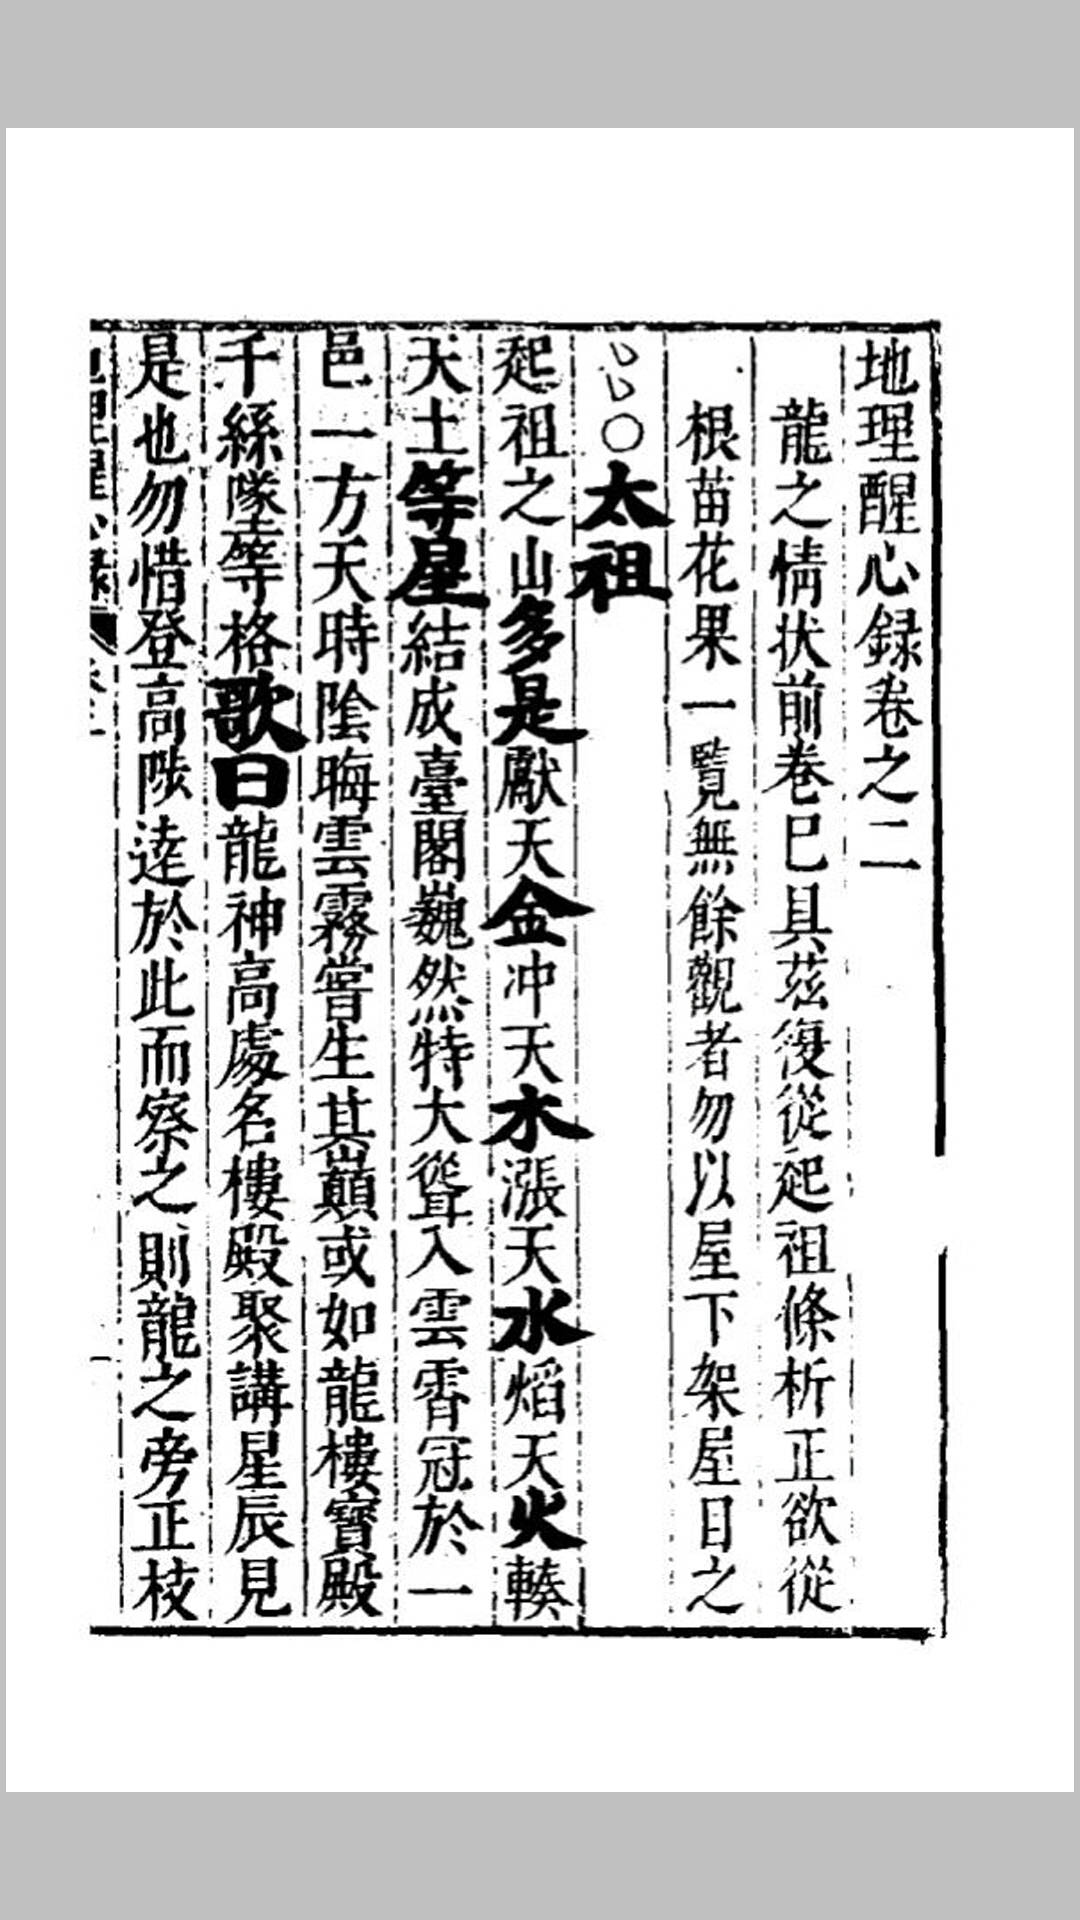 地理醒心録卷之二
龍之情状前卷巳具茲復從起祖條析正欲從
根苗花果一覧無餘觀者勿以屋下架屋目之
○太祖
起祖之山多是獻天金冲天木漲天水焰天火輳
天土等星結成臺閣巍然特大聳入雲霄冠於一
邑一方天時陰晦雲霧嘗生其巔或如龍樓寳殿
千絲墜等格歌曰龍神高處名樓殿聚講星辰見
是也勿惜登高陟逵於此而察之則龍之旁正枝
地理醒心録